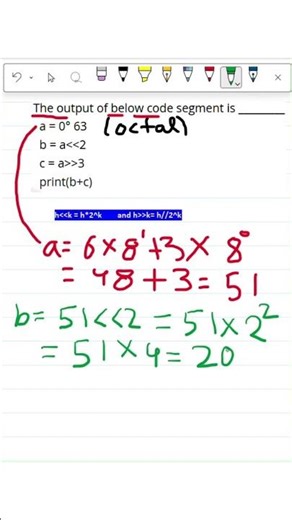 The output of below code segment is ________
a = 0° 63 (octal)
b = a<<2
c = a>>3
print(b+c)
h<<k = h*2^k and h>>k= h//2^k
a = 6 × 8¹ + 3 × 8⁰
= 48 + 3 = 51
b = 51<<2 = 51 × 2²
= 51 × 4 = 20